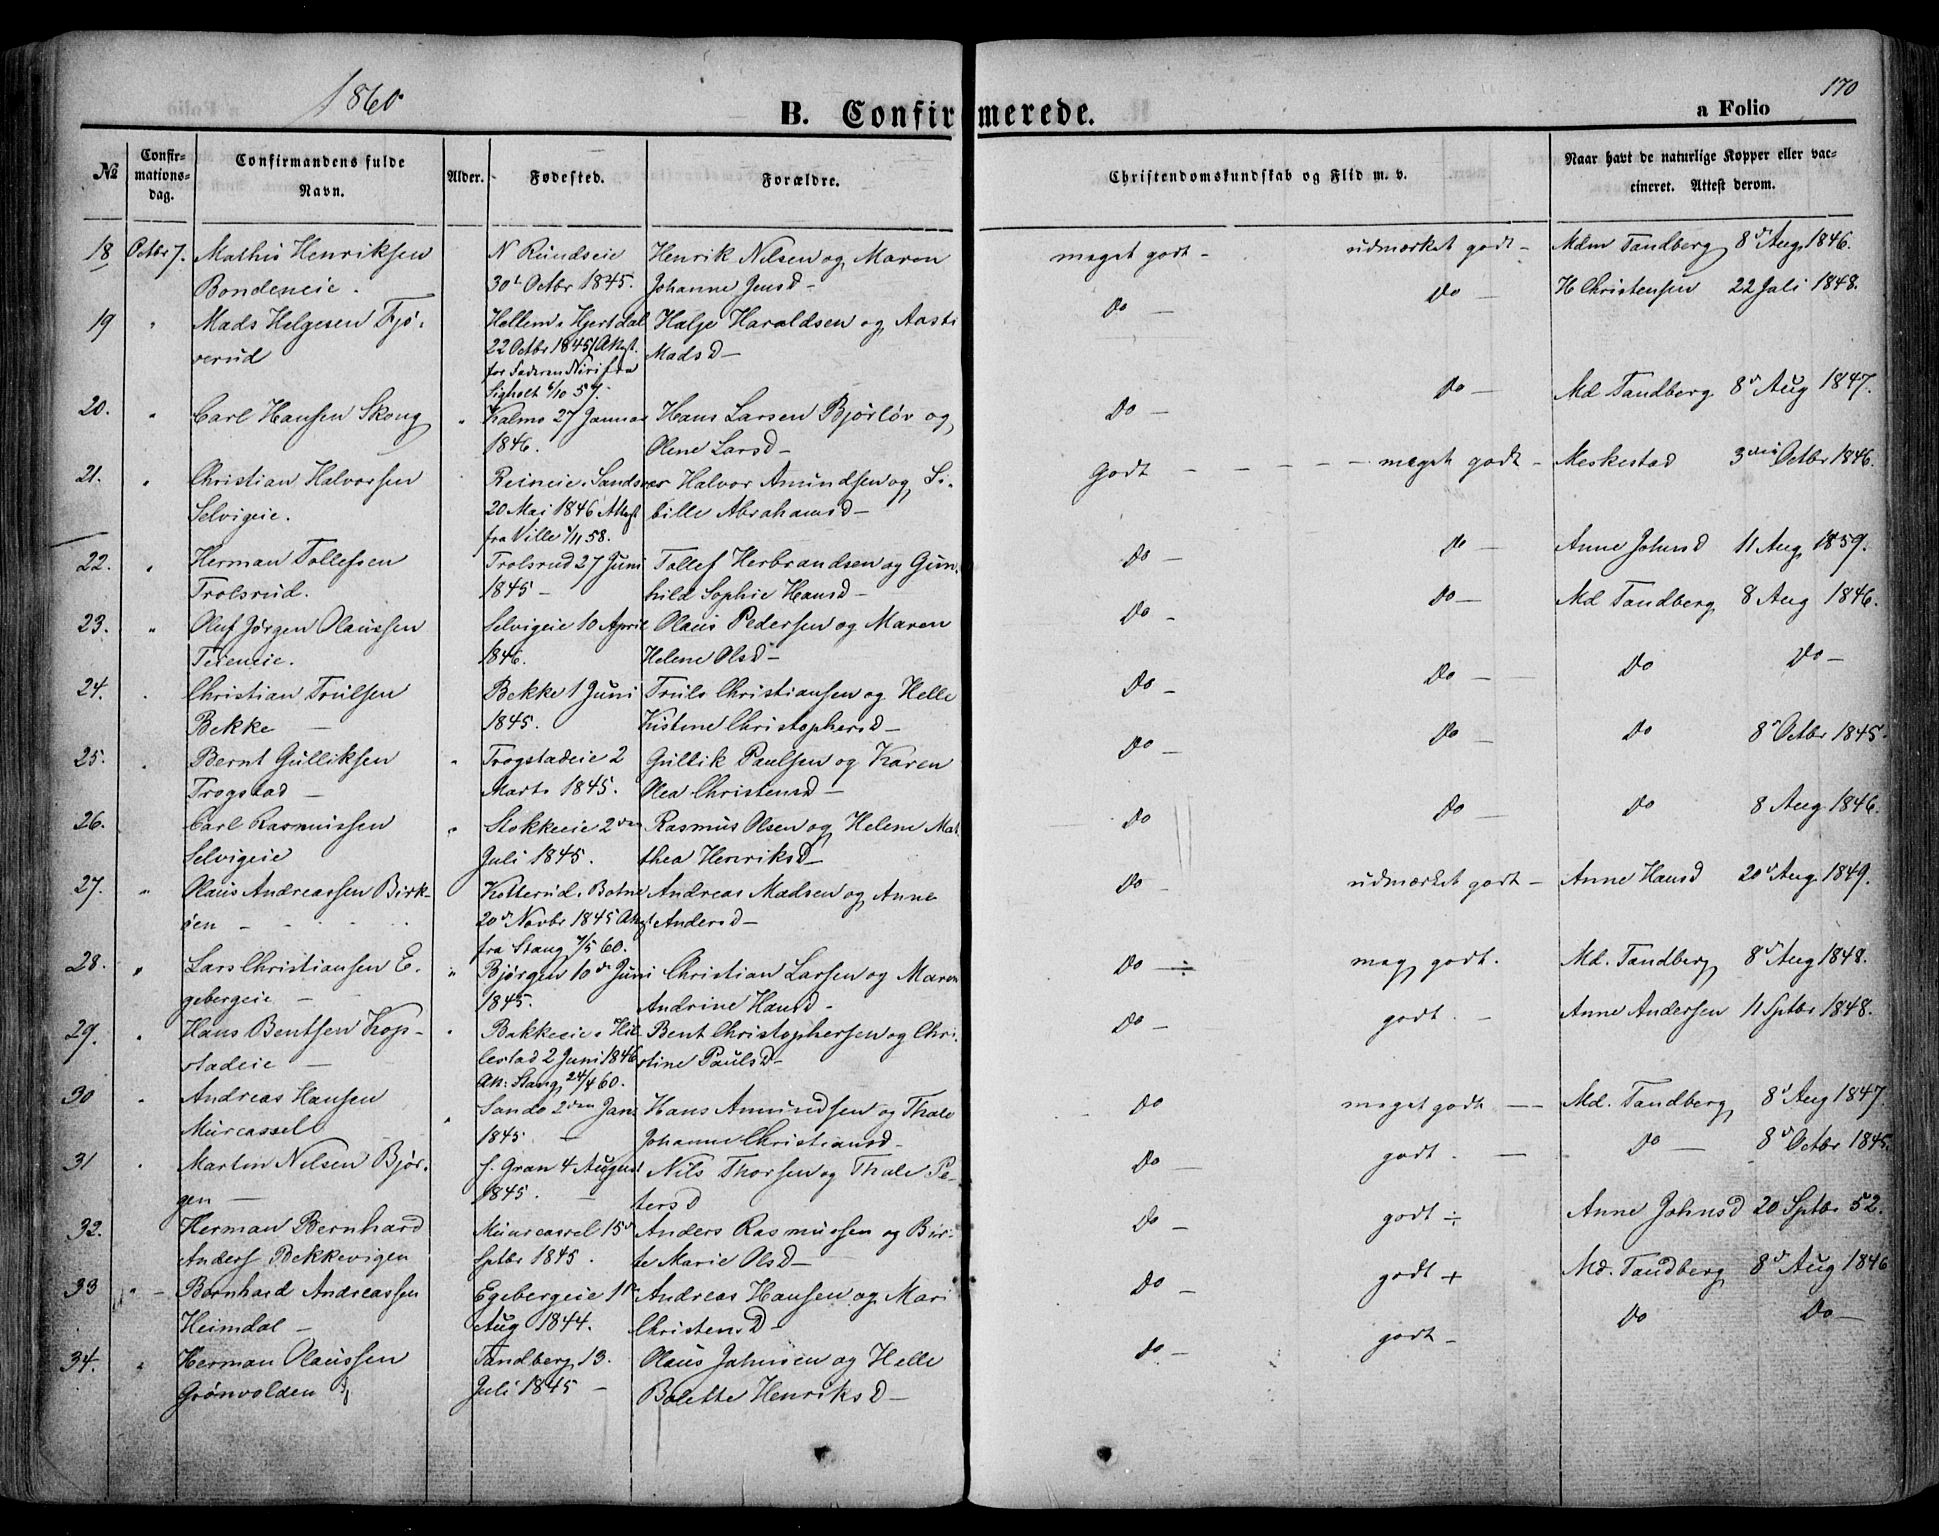 1860.
170
B. Confirmerede.
a Folio
No
Confir-
mations-
dag.
Confirmandens fulde
Navn.
Alder.
Fødested.
Forældre.
Christendomskundskab og Flid m. v.
Naar havt de naturlige Kopper eller vac-
cineret. Attest derom.
18 Octbr 7. Mathis Henriksen N Rundseie Henrik Nilsen og Maren meget godt - udmærket godt - Mdm Tandberg 8de Aug 1846.
Bondeneie. 30t Octbr 1845. Johanne Jensd -
19 " Mads Helgesen Fjø- Hellem i Hjertdal Halje Haraldsen og Aasti Do - Do - H Christensen 22 Juli 1848.
verud 22 Octbr 1845 (Attest. Madsd -
for Faderen Niri fra
Sigholt 6/10 57.
20. " Carl Hansen Skoug " Kalmo 27 Januar Hans Larsen Bjørløv og Do - Do - Md Tandberg 8d Aug 1847.
1846. Olene Larsd -
21. " Christian Halvorsen Reineie i Sandsvær Halvor Amundsen og Si- Godt - - - - - meget godt - Meskestad 3die Octbr 1846.
Selvigeie. 20 Mai 1846 Attest bille Abrahamsd -
fra Ville 1/11 58.
22. " Herman Tollefsen Trolsrud 27 Juni Tollef Herbrandsen og Gun- Do - Do - Anne Johnsd 11 Aug 1859.
Trolsrud. 1845 - hild Sophie Hansd -
23. " Oluf Jørgen Olaussen Selvigeie 10 April Olaus Pedersen og Maren Do - Do - Md Tandberg 8 Aug 1846.
Teieneie. 1846. Helene Olsd -
24. " Christian Trulsen Bekke 1 Juni Truls Christiansen og Helle Do - Do - - Do Do -
Bekke - 1845. Kistene Christophersd -
25. " Bernt Gulliksen " Trogstadeie 2 Gullik Paulsen og Karen Do - Do - Do 8d Octbr 1845.
Trogstad - Marts 1845. Olea Christensd -
26. Carl Rasmussen " Stokkeeie 2den Rasmus Olsen og Helene Mat- Do Do - Do 8 Aug 1846.
Selvigeie Juli 1845. thea Henriksd -
27. " Olaus Andreassen Birk- " Kotterud i Botne Andreas Madsen og Anne Do - udmærket godt - Anne Hansd 20d Aug 1849.
øen - 20d Novbr 1845 Attest Andersd -
fra Stang 7/5 60.
28. " Lars Christiansen E- " Bjørgen 10de Juni Christian Larsen og Maren Do - ÷ meg godt. Md. Tandberg 8d Aug 1848.
gebergeie - 1845. Andrine Hansd -
29. " Hans Bentsen Kop- " Bakkeeie i Hil- Bent Christophersen og Chri- Do - godt. - Anne Andersen 11 Sptbr 1848.
stadeie - lestad 2 Juni 1846 stine Paulsd -
Att: Stang 24/4 60.
30 " Andreas Hansen " Sando 2den Jan. Hans Amundsen og Thale Do meget godt - - Md. Tandberg 8d Aug 1847.
Murcassel 1845 - Johanne Christiansd -
31 " Martin Nilsen Bjør- f. Gran 4 August Nils Thorsen og Thale Pe- Do - godt. - Do - 8d Octbr 1845.
gen - 1845. - tersd
32. Herman Bernhard Muurcassel 15d Anders Rasmussen og Bir- Do - godt ÷ Anne Johnsd 20 Sptbr 52.
Anders Bekkevigen Sptbr 1845. te Marie Olsd -
33 " - Bernhard Andreassen Egebergeie 1ste Andreas Hansen og Mari Do - godt + Md. Tandberg 8d Aug 1846
Heimdal - Aug 1844. Christensd -
34. " Herman Olaussen Tandberg 13. Olaus Johnsen og Helle Do - godt - Do Do -
Grønvolden Juli 1845 - Bolette Henriksd -